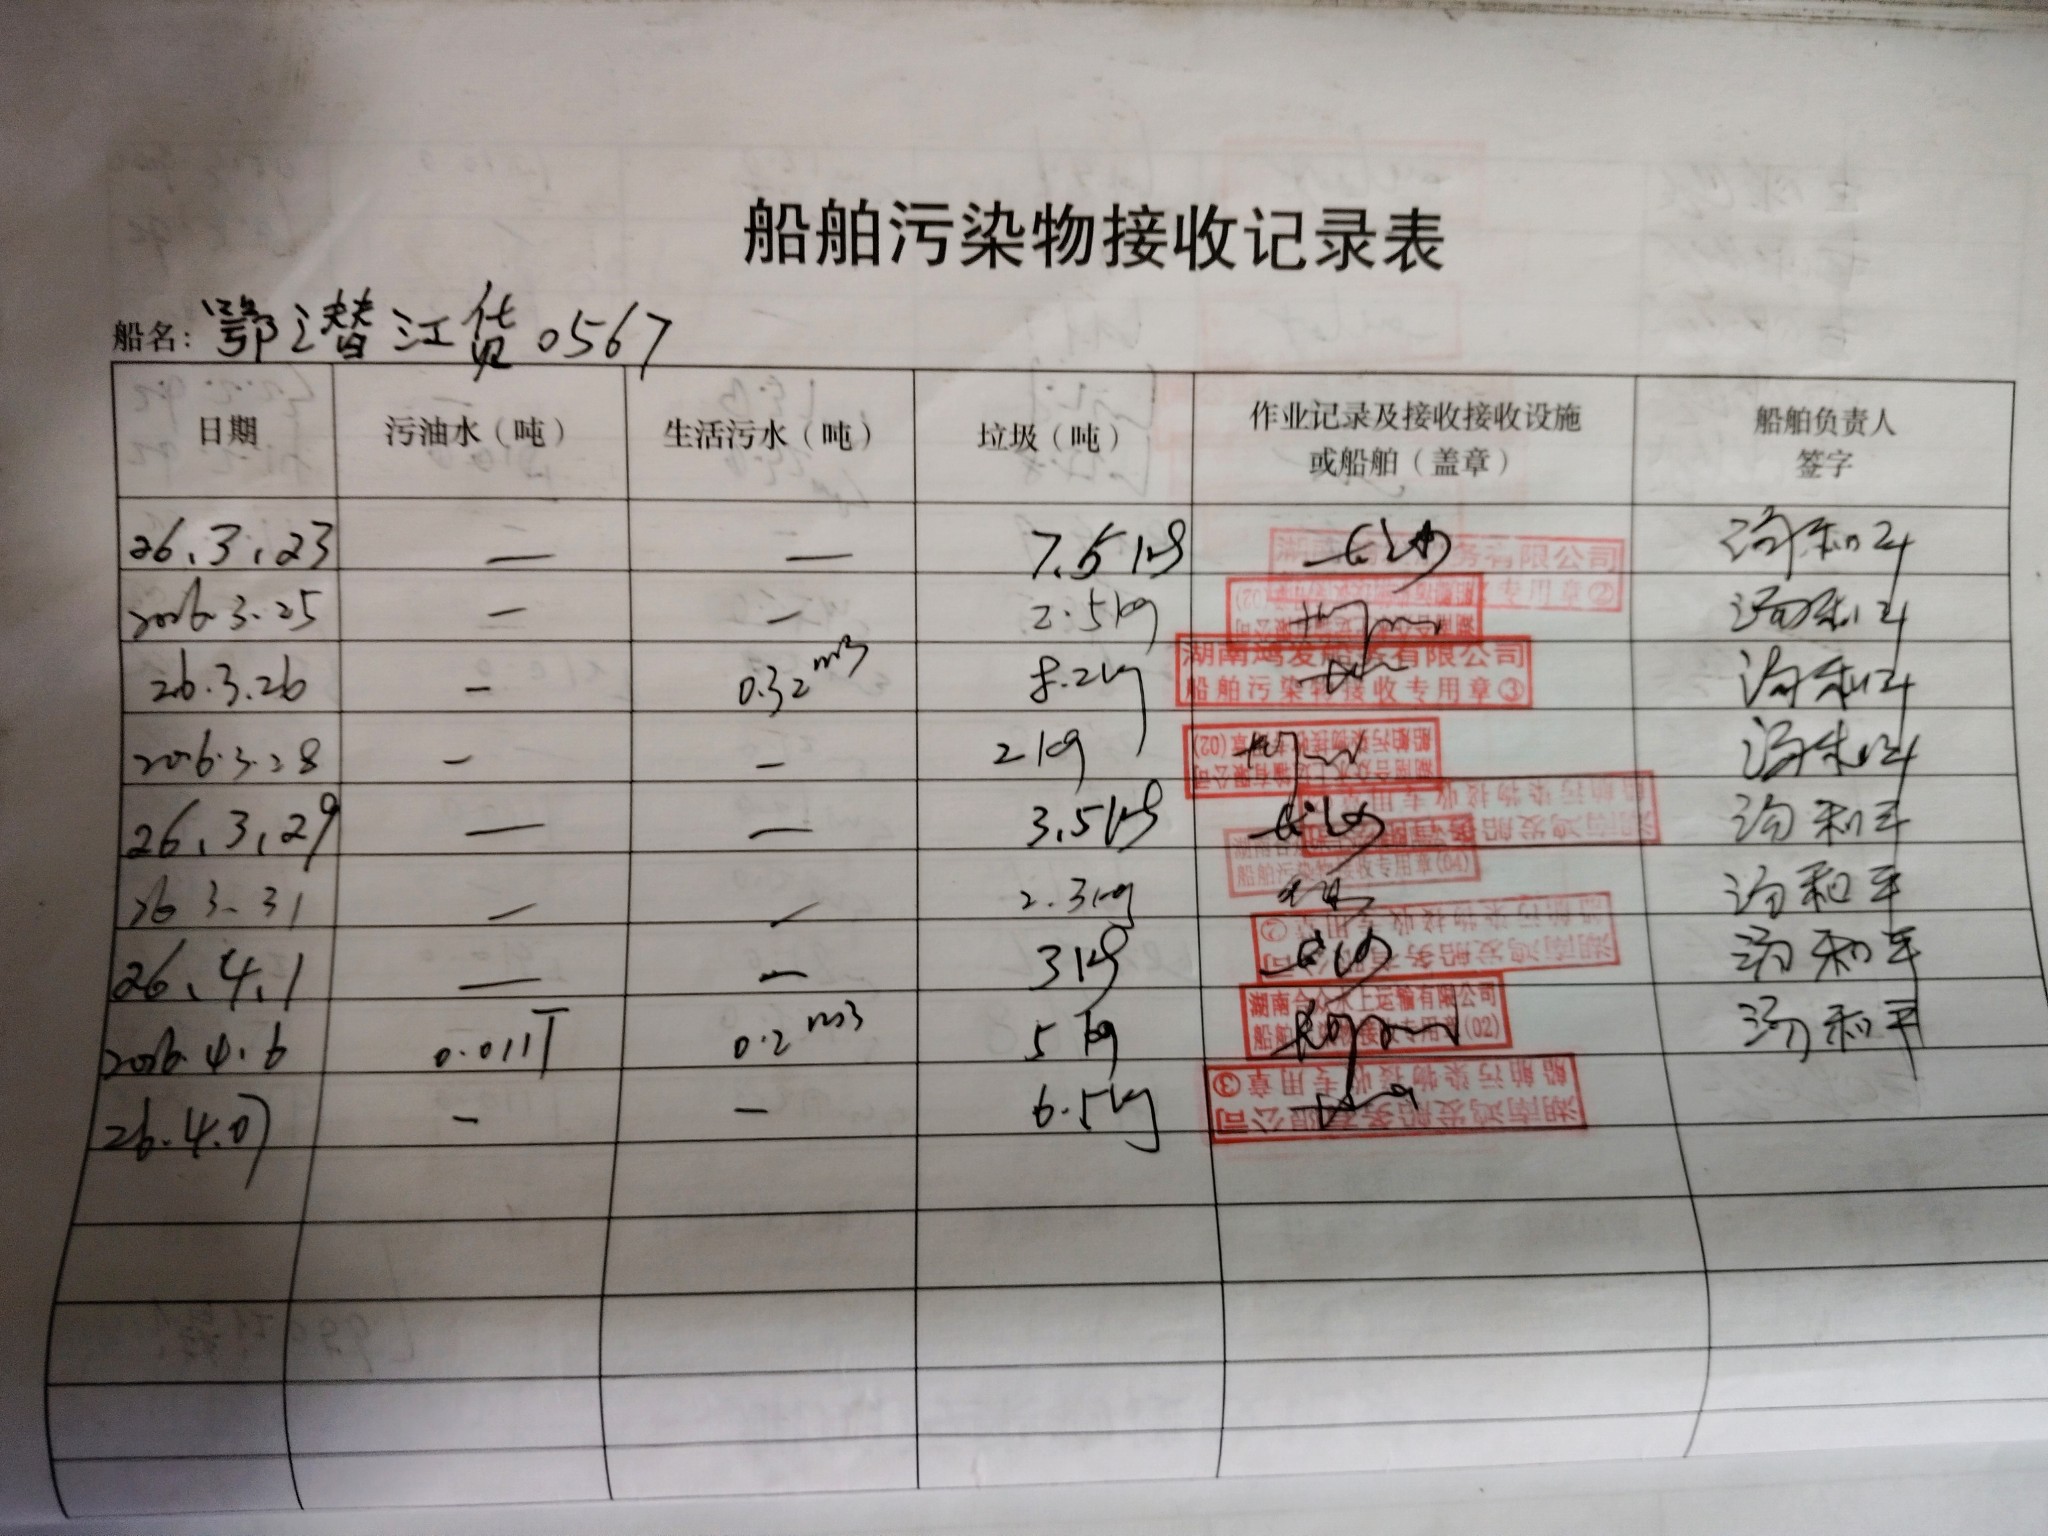 船舶污染物接收记录表
船名: 鄂潜江货0567
日期 污油水（吨） 生活污水（吨） 垃圾（吨） 作业记录及接收接收设施或船舶（盖章） 船舶负责人签字
26.3.23 — — 7.5kg 湖南 务有限公司 专用章② 汤和平
2026.3.25 — — 2.5kg 汤和平
26.3.26 - 0.32m3 8.2kg 湖南鸿发船务有限公司 船舶污染物接收专用章③ 汤和平
2026.3.28 - - 2kg 湖南合众水上运输有限公司 船舶污染物接收专用章(02) 汤和平
26.3.29 — — 3.5kg 湖南鸿发船务有限公司 船舶污染物接收专用章 汤和平
26 3.31 — — 2.3kg 船舶污染物接收专用章(04) 汤和平
26.4.1 — — 3kg 湖南鸿发船务有限公司 船舶污染物接收专用章② 汤和平
2026.4.6 0.011T 0.2m3 5kg 湖南合众水上运输有限公司 船舶污染物接收专用章(02) 汤和平
26.4.07 - - 6.5kg 湖南鸿发船务有限公司 船舶污染物接收专用章③